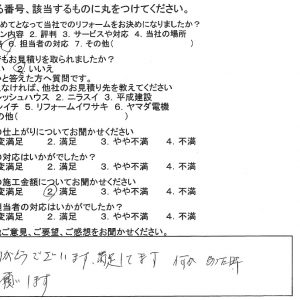 る番号、該当するものに丸をつけてください。
めてとなって当社でのリフォームをお決めになりましたか?
ン内容 2. 評判 3. サービスや対応 4. 当社の場所
6. 担当者の対応 7. その他(
もお見積りを取られましたか?
い 2. いいえ
と答えた方へ質問です。
えなければ、他社のお見積り先を教えてください
レッシュハウス 2. ニラスイ 3. 平成建設
イチ 5. リフォームイワサキ 6. ヤマダ電機
の他( )
の仕上がりについてお聞かせください
変満足 2. 満足 3. やや不満 4. 不満
の対応はいかがでしたか?
変満足 2. 満足 3. やや不満 4. 不満
の施工金額についてお聞かせください
変満足 2. 満足 3. やや不満 4. 不満
担当者の対応はいかがでしたか?
変満足 2. 満足 3. やや不満 4. 不満
ご意見、ご要望、ご感想をお聞かせください。
がとうございます、満足してます
願います